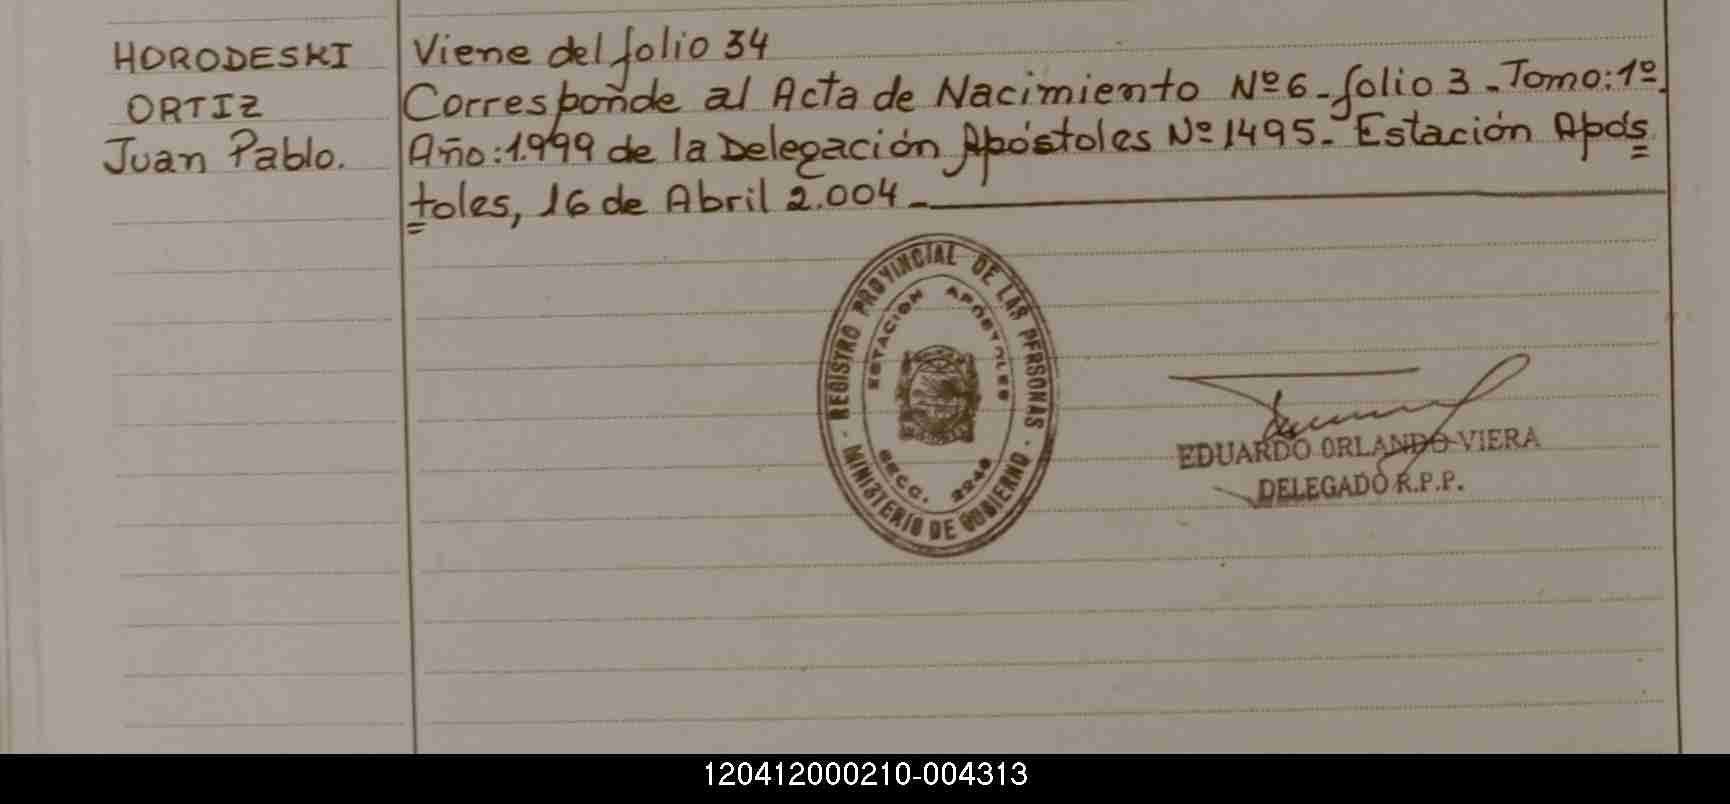 HORODESKI
ORTIZ
Juan Pablo.
Viene del folio 34
Corresponde al Acta de Nacimiento Nº6_folio 3_Tomo:1º.
Año:1.999 de la Delegación Apóstoles Nº1495_Estación Após
toles, 16 de Abril 2.004_
REGISTRO PROVINCIAL DE LAS PERSONAS
· MINISTERIO DE GOBIERNO ·
ESTACION APOSTOLES
SECC. 2248
EDUARDO ORLANDO VIERA
DELEGADO R.P.P.
120412000210-004313